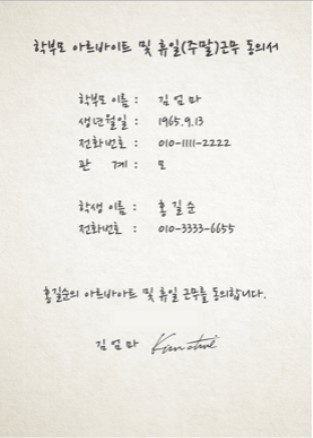 학부모 아르바이트 및 휴일(주말)근무 동의서
학부모 이름 : 김 엄 마
생년월일 : 1965.9.13
전화번호 : 010-1111-2222
관 계 : 모
학생 이름 : 홍 길 순
전화번호 : 010-3333-6655
홍길순의 아르바이트 및 휴일 근무를 동의합니다.
김 엄 마